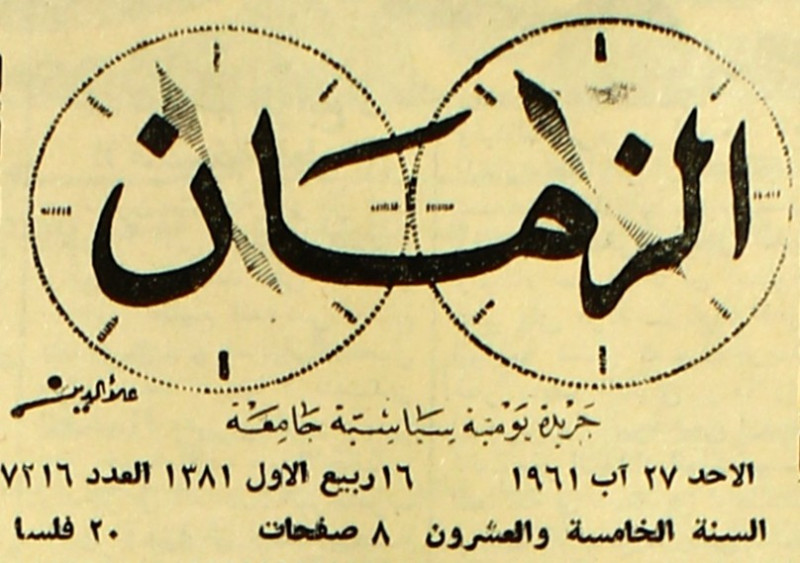 الزمان
علاء الدين
جريدة يومية سياسية جامعة
الاحد ٢٧ آب ١٩٦١ ١٦ ربيع الاول ١٣٨١ العدد ٧٢١٦
السنة الخامسة والعشرون ٨ صفحات ٢٠ فلسا